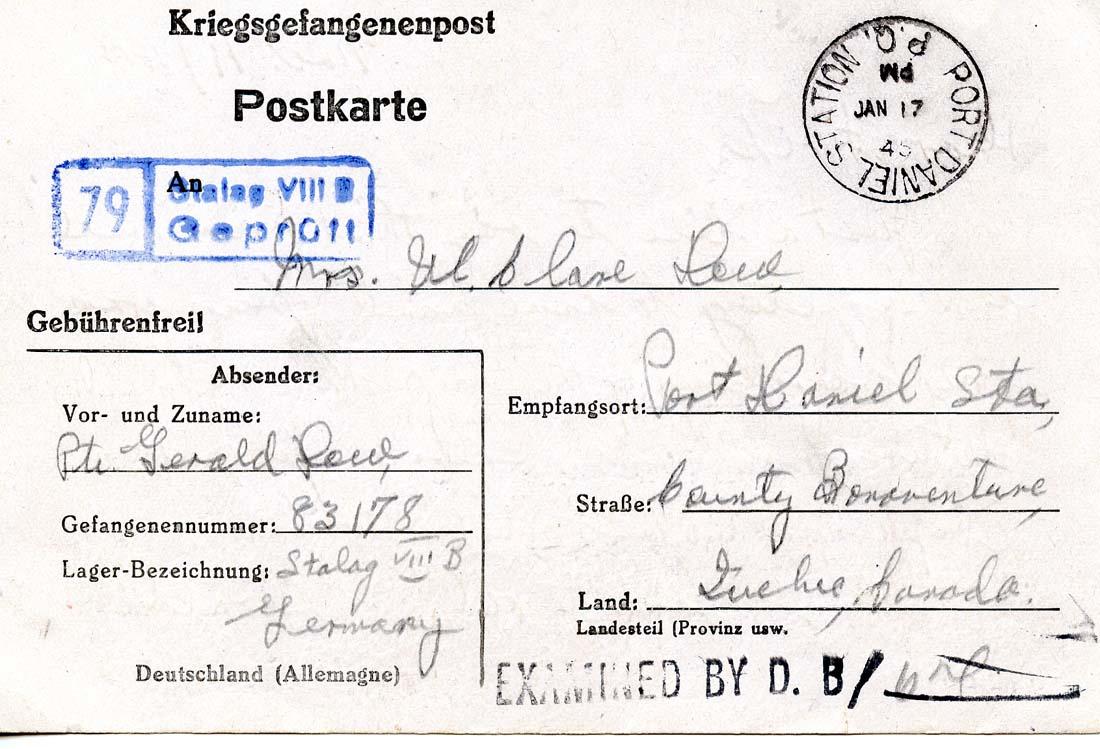 Kriegsgefangenenpost
Postkarte
PORT DANIEL STATION P.Q.
PM
JAN 17
45
79
An
Stalag VIII B
Geprüft
Mrs. Clare Dow
Gebührenfrei!
Absender:
Vor- und Zuname:
Pte. Gerald Dow,
Gefangenennummer: 83178
Lager-Bezeichnung: Stalag VIII B
Germany
Deutschland (Allemagne)
Empfangsort: Port Daniel Sta,
Straße: County Bonaventure,
Land: Quebec, Canada.
Landesteil (Provinz usw.
EXAMINED BY D. B/